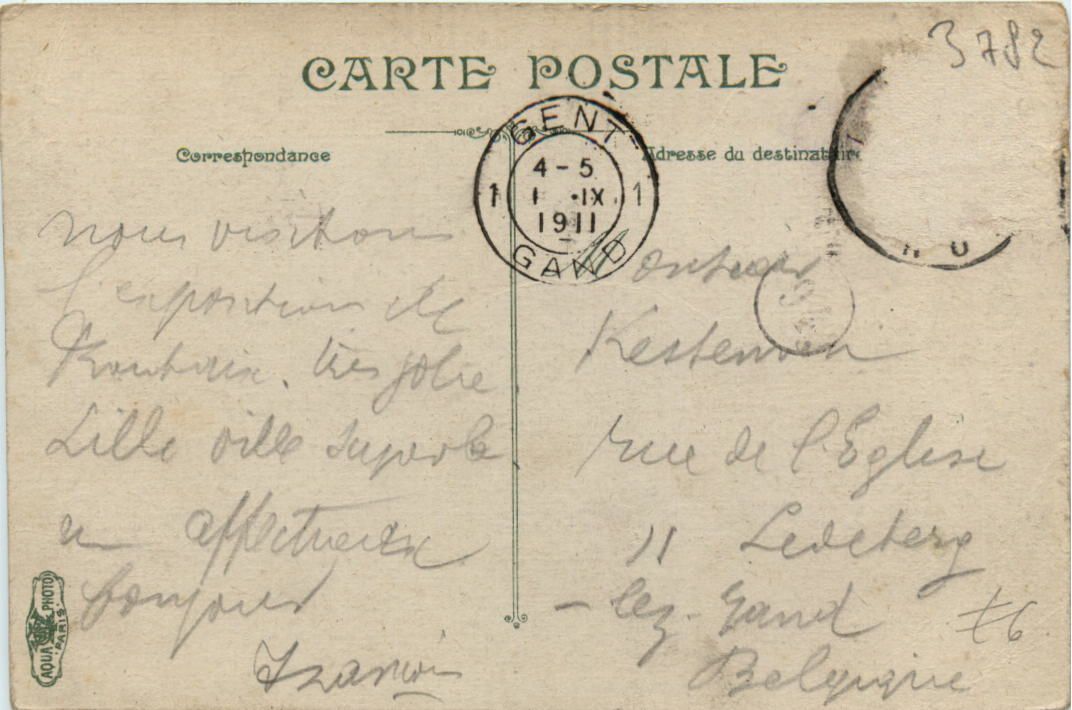 CARTE POSTALE
3782
Correspondance
Adresse du destinataire
GENT
4-5
1 1 ·IX 1
1911
GAND
nous visitons
l'exposition de
Roubaix. très jolie
Lille ville superbe
un affectueux
bonjour
François
Kestemon
rue de l'Eglise
11 Ledeberg
- lez-Gand
Belgique
£6
AQUA PHOTO
PARIS